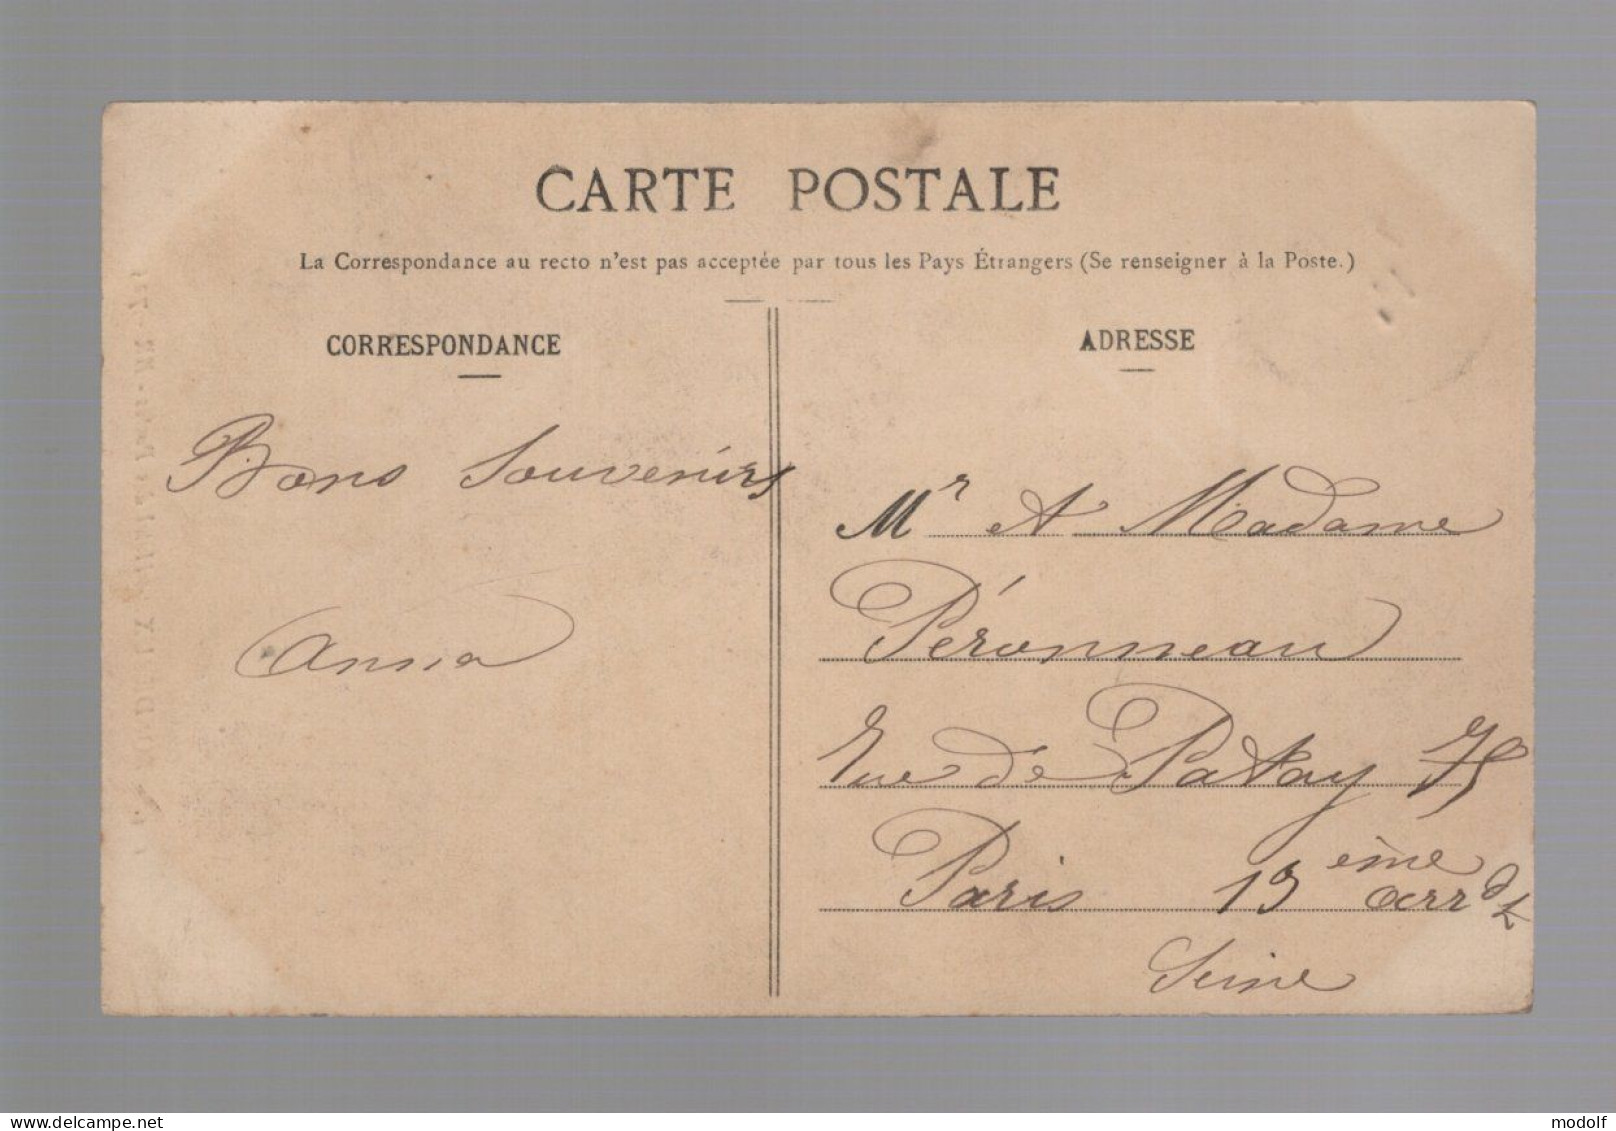 CARTE POSTALE
La Correspondance au recto n'est pas acceptée par tous les Pays Étrangers (Se renseigner à la Poste.)
CORRESPONDANCE
Bons Souvenirs
Anna
ADRESSE
Mr et Madame
Péronneau
Rue de Patay 75
Paris 13ème arrdt
Seine
modolf